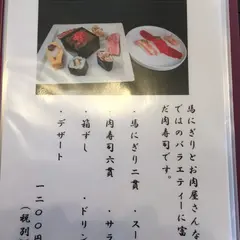 馬にぎりとお肉屋さんな
ではのバラエティーに富
だ肉寿司です。
・馬にぎり二貫 ・スー
・肉寿司六貫 ・サラ
・箱ずし ・ドリン
・デザート
一二〇〇円
（税別